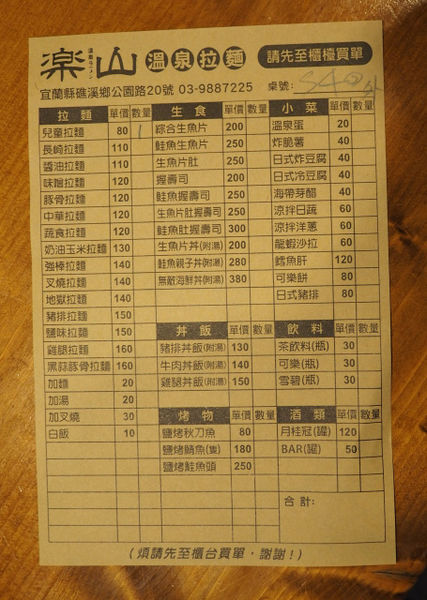 楽山 溫泉ラーメン 溫泉拉麵 請先至櫃檯買單
宜蘭縣礁溪鄉公園路20號 03-9887225 桌號:
拉麵 單價 數量 生食 單價 數量 小菜 單價 數量
兒童拉麵 80 1 綜合生魚片 200 溫泉蛋 20
長崎拉麵 110 鮭魚生魚片 250 炸脆薯 40
醬油拉麵 110 生魚片肚 250 日式炸豆腐 40
味噌拉麵 120 握壽司 200 日式冷豆腐 40
豚骨拉麵 120 鮭魚握壽司 250 海帶芽醋 40
中華拉麵 120 生魚片肚握壽司 250 涼拌日蔬 60
蔬食拉麵 120 鮭魚肚握壽司 300 涼拌洋蔥 60
奶油玉米拉麵 130 生魚片丼(附湯) 200 龍蝦沙拉 60
強棒拉麵 140 鮭魚親子丼(附湯) 280 鱈魚肝 120
叉燒拉麵 140 無敵海鮮丼(附湯) 380 可樂餅 80
地獄拉麵 140 日式豬排 80
豬排拉麵 150
鹽味拉麵 150 丼飯 單價 數量 飲料 單價 數量
雞腿拉麵 160 豬排丼飯(附湯) 130 茶飲料(瓶) 30
黑蒜豚骨拉麵 160 牛肉丼飯(附湯) 140 可樂(瓶) 30
加麵 20 雞腿丼飯(附湯) 150 雪碧(瓶) 30
加湯 20
加叉燒 30 烤物 單價 數量 酒類 單價 數量
白飯 10 鹽烤秋刀魚 80 月桂冠(罐) 120
鹽烤鯖魚(隻) 180 BAR(罐) 50
鹽烤鮭魚頭 250
合計:
(煩請先至櫃台買單,謝謝!)